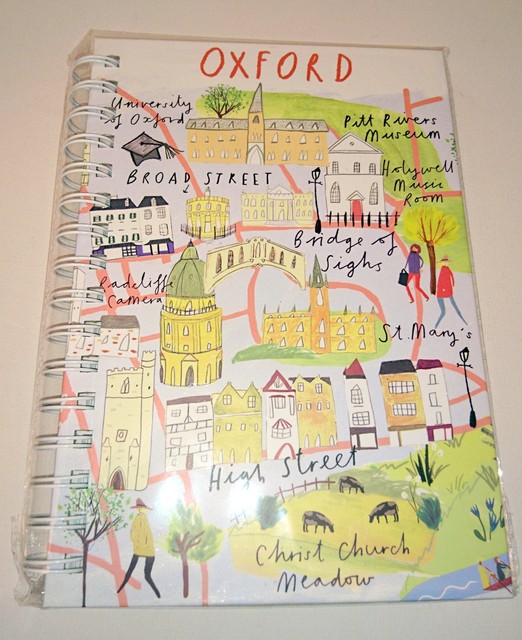 OXFORD
University
of Oxford
Pitt Rivers
Museum
BROAD STREET
Holywell
Music
Room
Bridge of
Sighs
Radcliffe
Camera
St. Mary's
High Street
Christ Church
Meadow